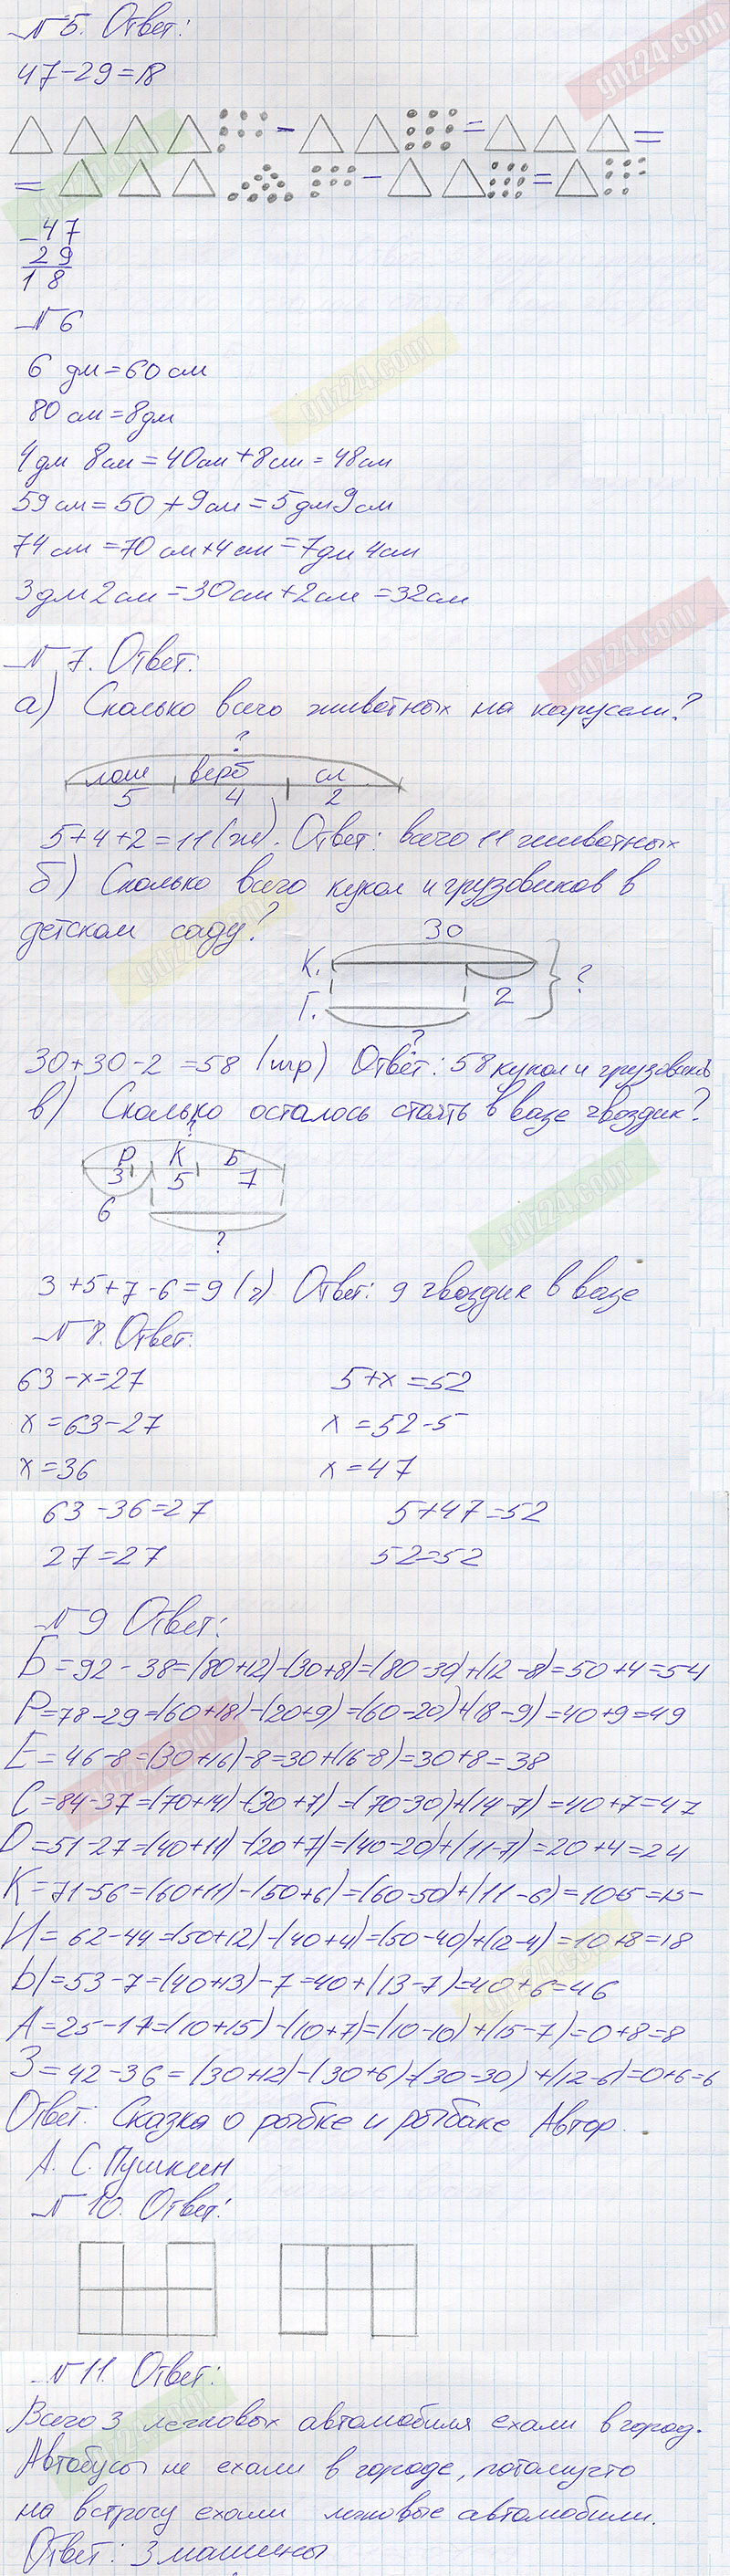 №5. Ответ:
47-29=18
- = =
= - =
-47
29
18
№6
6 дм=60см
80 см=8дм
4дм 8см=40см+8см=48см
59см=50+9см=5дм9см
74см=70см+4см=7дм 4см
3дм2см=30см+2см=32см
№7. Ответ:
а) Сколько всего животных на карусели?
?
лош верб сл
5 4 2
5+4+2=11(ж). Ответ: всего 11 животных
б) Сколько всего кукол и грузовиков в
детском саду?
30
К.
2 ?
Г.
?
30+30-2=58 (игр) Ответ: 58 кукол и грузовиков
в) Сколько осталось стоять в вазе гвоздик?
?
Р К Б
3 5 7
6
?
3+5+7-6=9(г) Ответ: 9 гвоздик в вазе
№8. Ответ:
63-x=27 5+x=52
x=63-27 x=52-5
x=36 x=47
63-36=27 5+47=52
27=27 52=52
№9 Ответ:
Б=92-38=(80+12)-(30+8)=(80-30)+(12-8)=50+4=54
Р=78-29=(60+18)-(20+9)=(60-20)+(18-9)=40+9=49
Е=46-8=(30+16)-8=30+(16-8)=30+8=38
С=84-37=(70+14)-(30+7)=(70-30)+(14-7)=40+7=47
О=51-27=(40+11)-(20+7)=(40-20)+(11-7)=20+4=24
К=71-56=(60+11)-(50+6)=(60-50)+(11-6)=10+5=15
И=62-44=(50+12)-(40+4)=(50-40)+(12-4)=10+8=18
Ы=53-7=(40+13)-7=40+(13-7)=40+6=46
А=25-17=(10+15)-(10+7)=(10-10)+(15-7)=0+8=8
З=42-36=(30+12)-(30+6)=(30-30)+(12-6)=0+6=6
Ответ: Сказка о рыбке и рыбаке Автор.
А. С. Пушкин
№10. Ответ:
№11. Ответ:
Всего 3 легковых автомобиля ехали в город.
Автобусы не ехали в городе, потомучто
на встречу ехали легковые автомобили.
Ответ: 3 машины
gdz24.com
gdz24.com
gdz24.com
gdz24.com
gdz24.com
gdz24.com